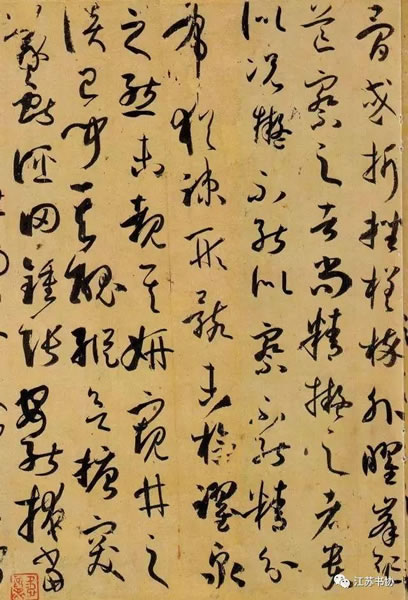 骨或折挫槎枿外曜鋒
芒察之者尚精擬之者貴
似況擬不能似察不能精分
布猶疏形骸未檢躍泉
之態未覩其妍窺井之
談已聞其醜縱欲搪突
羲獻誣罔鍾張安能掩當
江苏书协